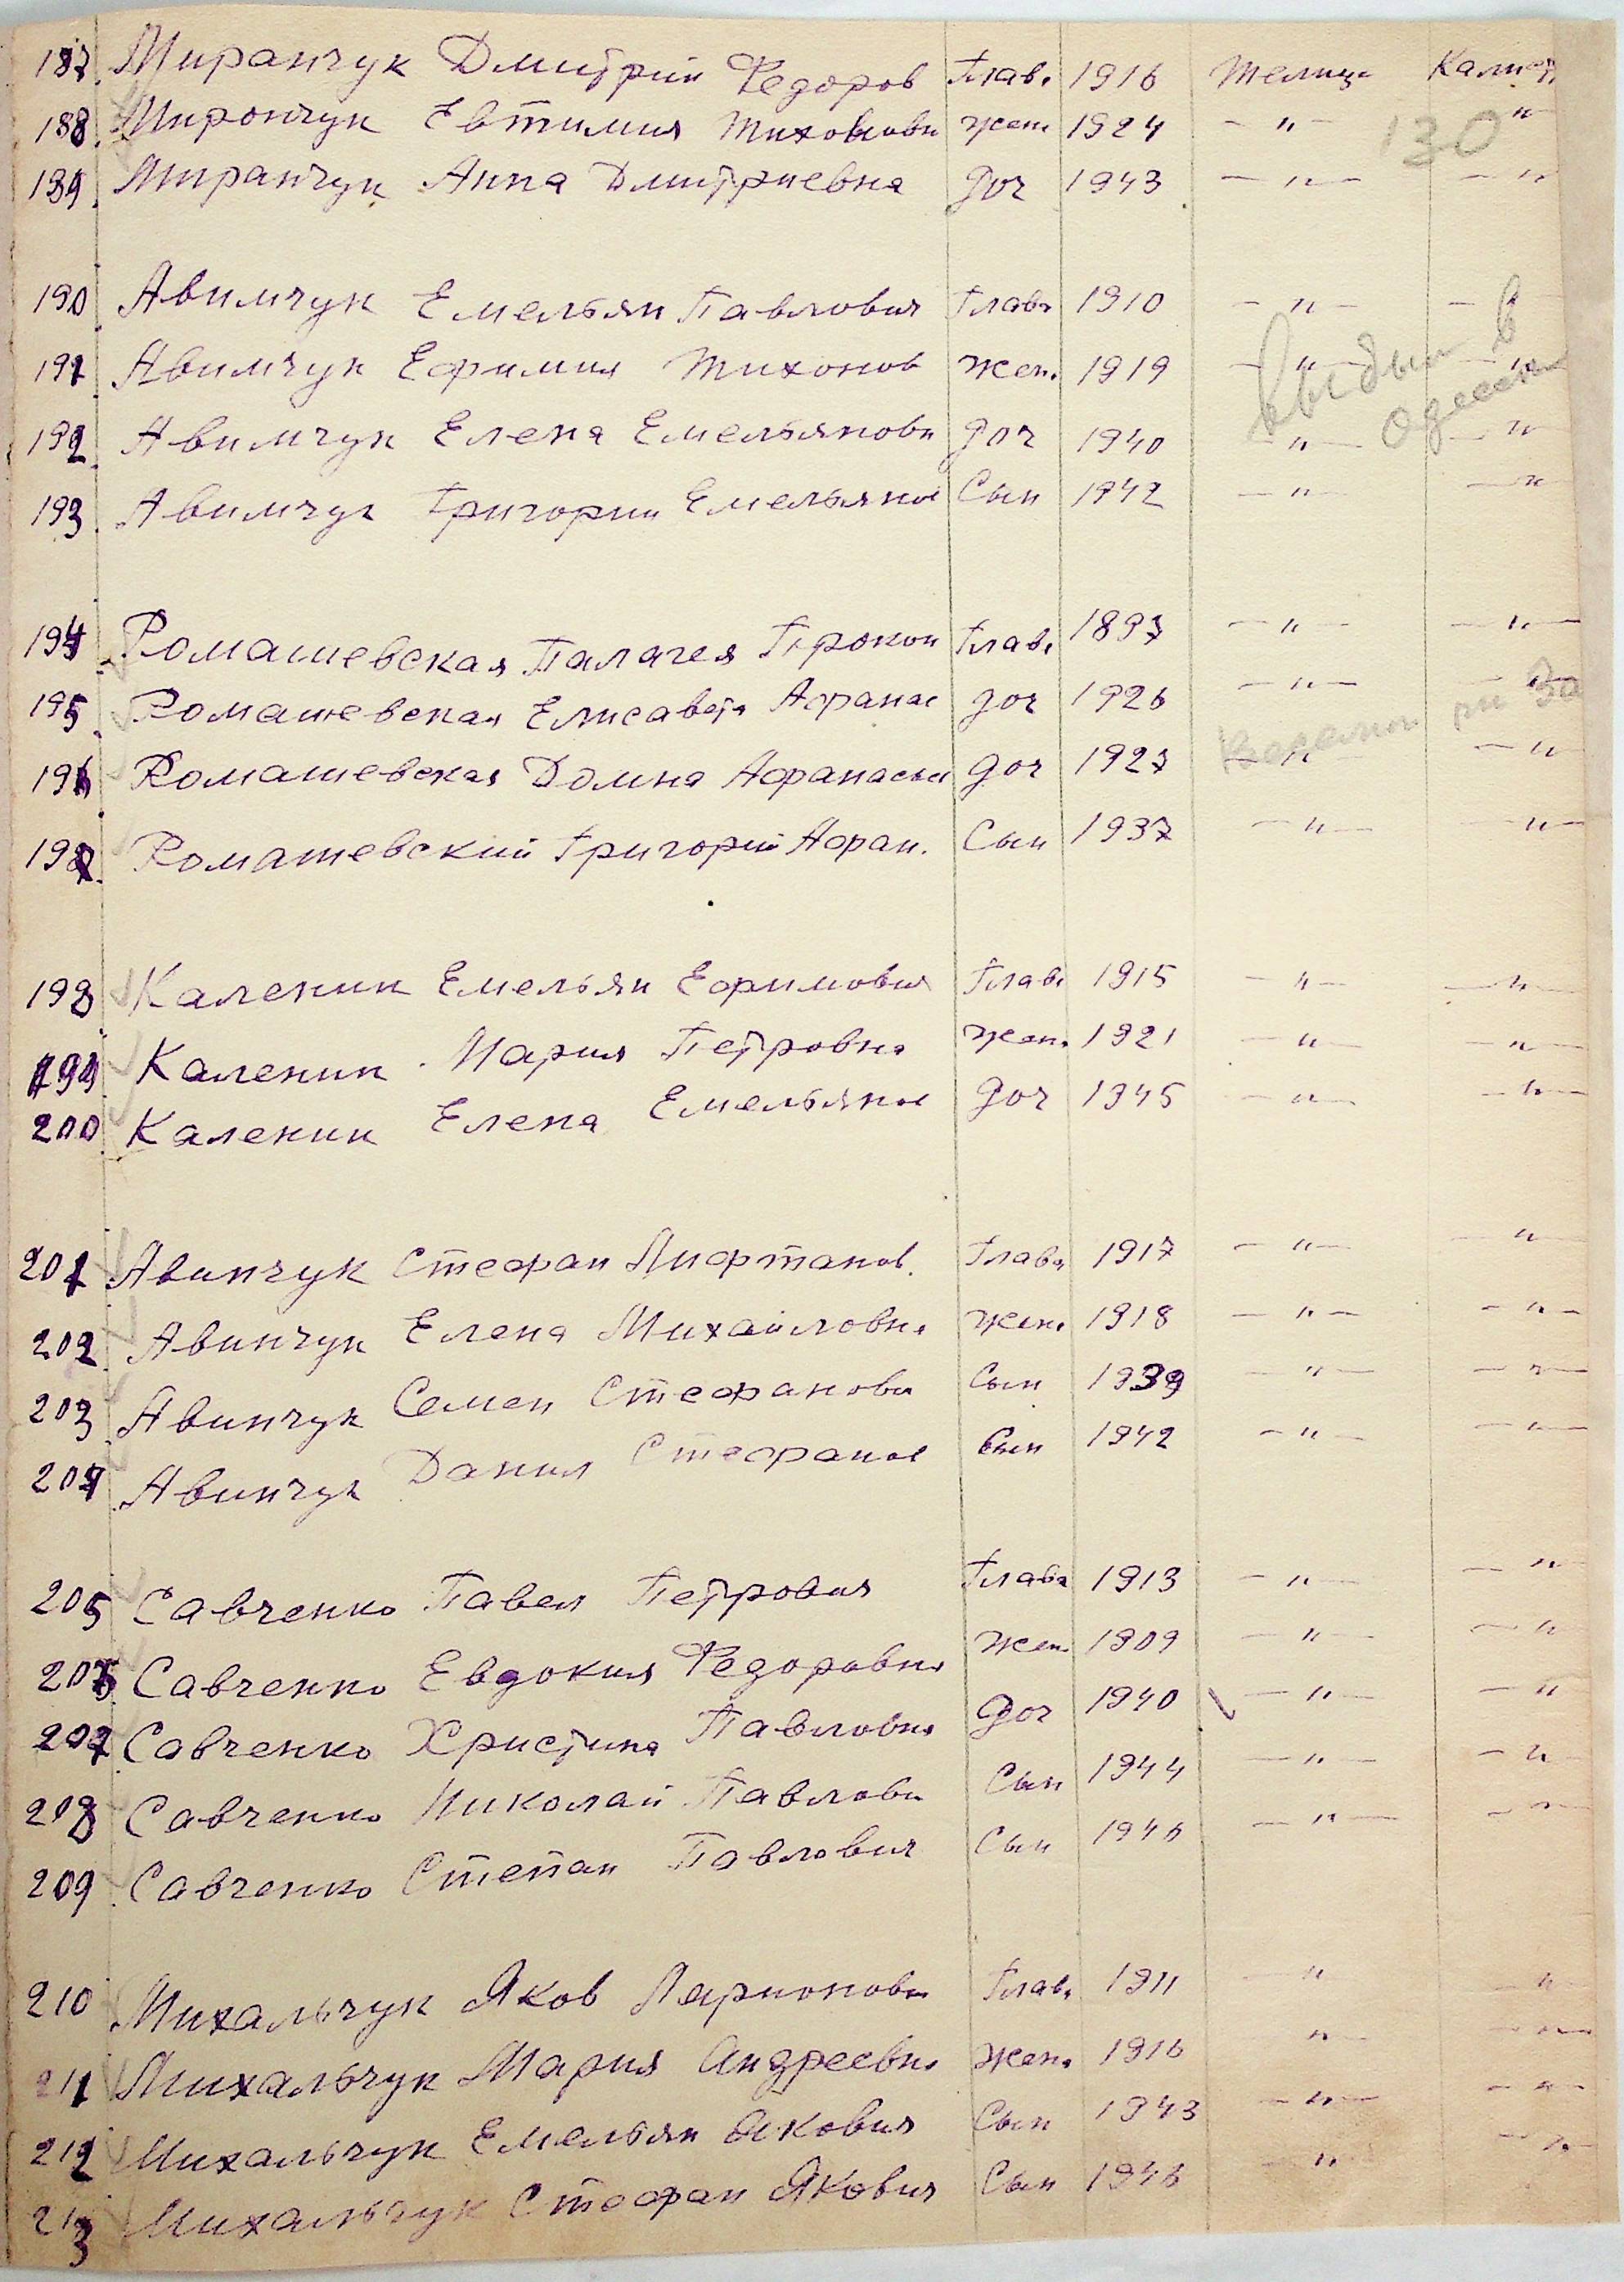 187. Миранчук Дмитрий Федоров Глав. 1916 Желище
188. Мирончук Евтимия Тиховнови жен 1924 —"— 130 "
189 Миранчук Анна Дмитриевна доч 1943 —"— —"
190 Авимчук Емельян Павлович Глава 1910 —"— —
191 Авимчук Ефимия Тихонов жен. 1919 —"— —"—
выбыл в
одесск
192. Авимчук Елена Емельянови доч 1940 —"— —"
193. Авимчук Григории Емельянов Сын 1942 —"— —"
194 Ромашевская Палагея Прокоп Глав. 1897 —"— —"—
195. Ромашевская Елисавета Афанас доч 1926 —"— —"—
196 Ромашевская Домна Афанасьев доч 1927 —"— —"
197. Ромашевский Григорий Афан. Сын 1937 —"— —"—
198 Каленик Емельян Ефимович Глав. 1915 —"— —"—
199 Каленик Мария Петровна жен. 1921 —"— —"—
200 Каленик Елена Емельянов доч 1945 —"— —"—
201 Авинчук Стефан Лифтанов. Глава 1917 —"— —"
202 Авинчук Елена Михайловна жен. 1918 —"— —"—
203 Авинчук Семен Стефанови Сын 1939 —"— —"—
204 Авинчук Данил Стефанов Сын 1942 —"— —"—
205 Савченко Павел Петрович Глава 1913 —"— —"
206 Савченко Евдокия Федоровна жен. 1909 —"— —"
207 Савченко Христина Павловна доч 1940 —"— —"
208 Савченко Николай Павлови Сын 1944 —"— —"
209 Савченко Степан Павлович Сын 1946 —"— —"—
210 Михальчук Яков Ларионови Глав. 1911 —" —"
211 Михальчук Мария Андреевна жена 1916 "— —"—
212 Михальчук Емельян Якович Сын 1943 —"— —"—
213 Михальчук Стефан Якович Сын 1946 —" —"